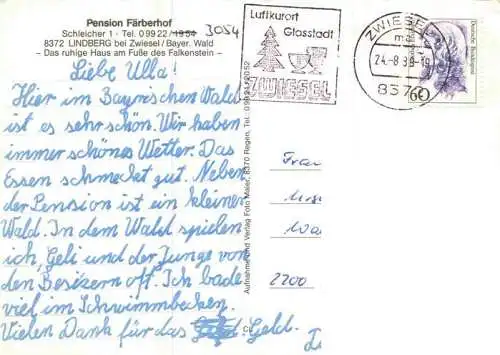 Pension Färberhof
Schleicher 1 · Tel. 0 99 22 / 1954 3054
8372 LINDBERG bei Zwiesel / Bayer. Wald
- Das ruhige Haus am Fuße des Falkenstein -
Liebe Ulla!
Hier im Bayrischen Wald
ist es sehr schön. Wir haben
immer schönes Wetter. Das
Essen schmeckt gut. Neben
der Pension ist ein kleiner
Wald. In dem Wald spielen
ich, Geli und der Junge von
den Besizern oft. Ich bade
viel im Schwimmbecken.
Vielen Dank für das Geld.
Aufnahme und Verlag Foto Maier, 8370 Regen, Tel. 0 99 21 / 20 52
Luftkurort
Glasstadt
ZWIESEL
ZWIESEL
24.-8.8
837
60
Deutsche Bundespost
Frau
2200